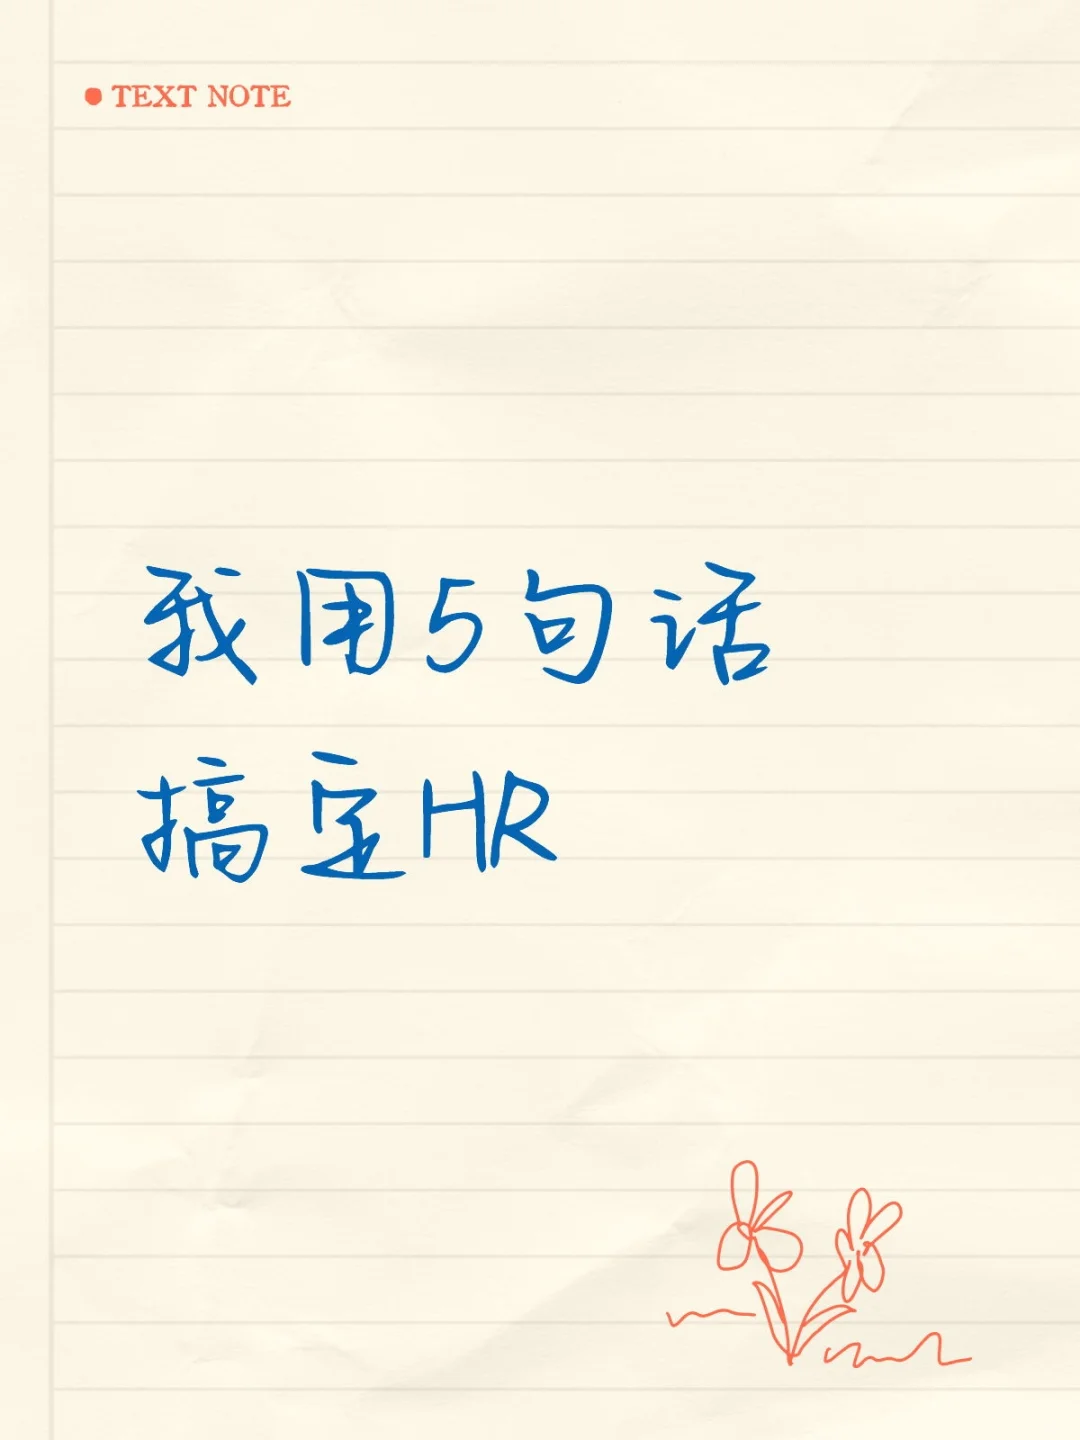 TEXT NOTE
我用5句话
搞定HR